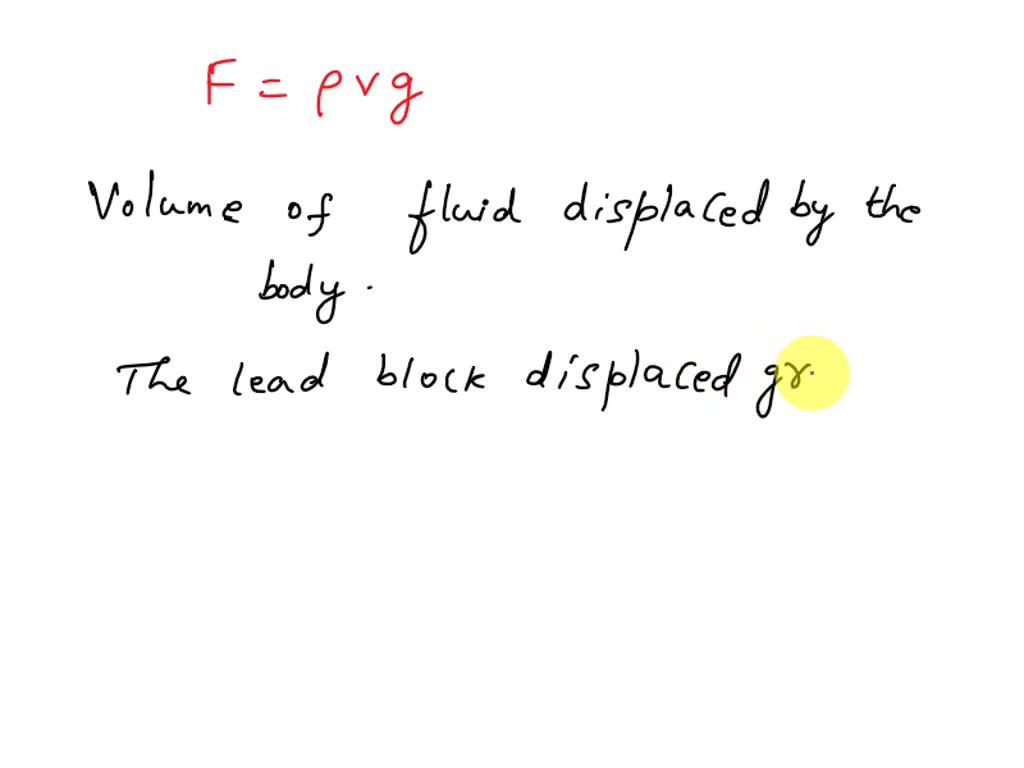 F = ρvg
Volume of fluid displaced by the
body.
The lead block displaced gr